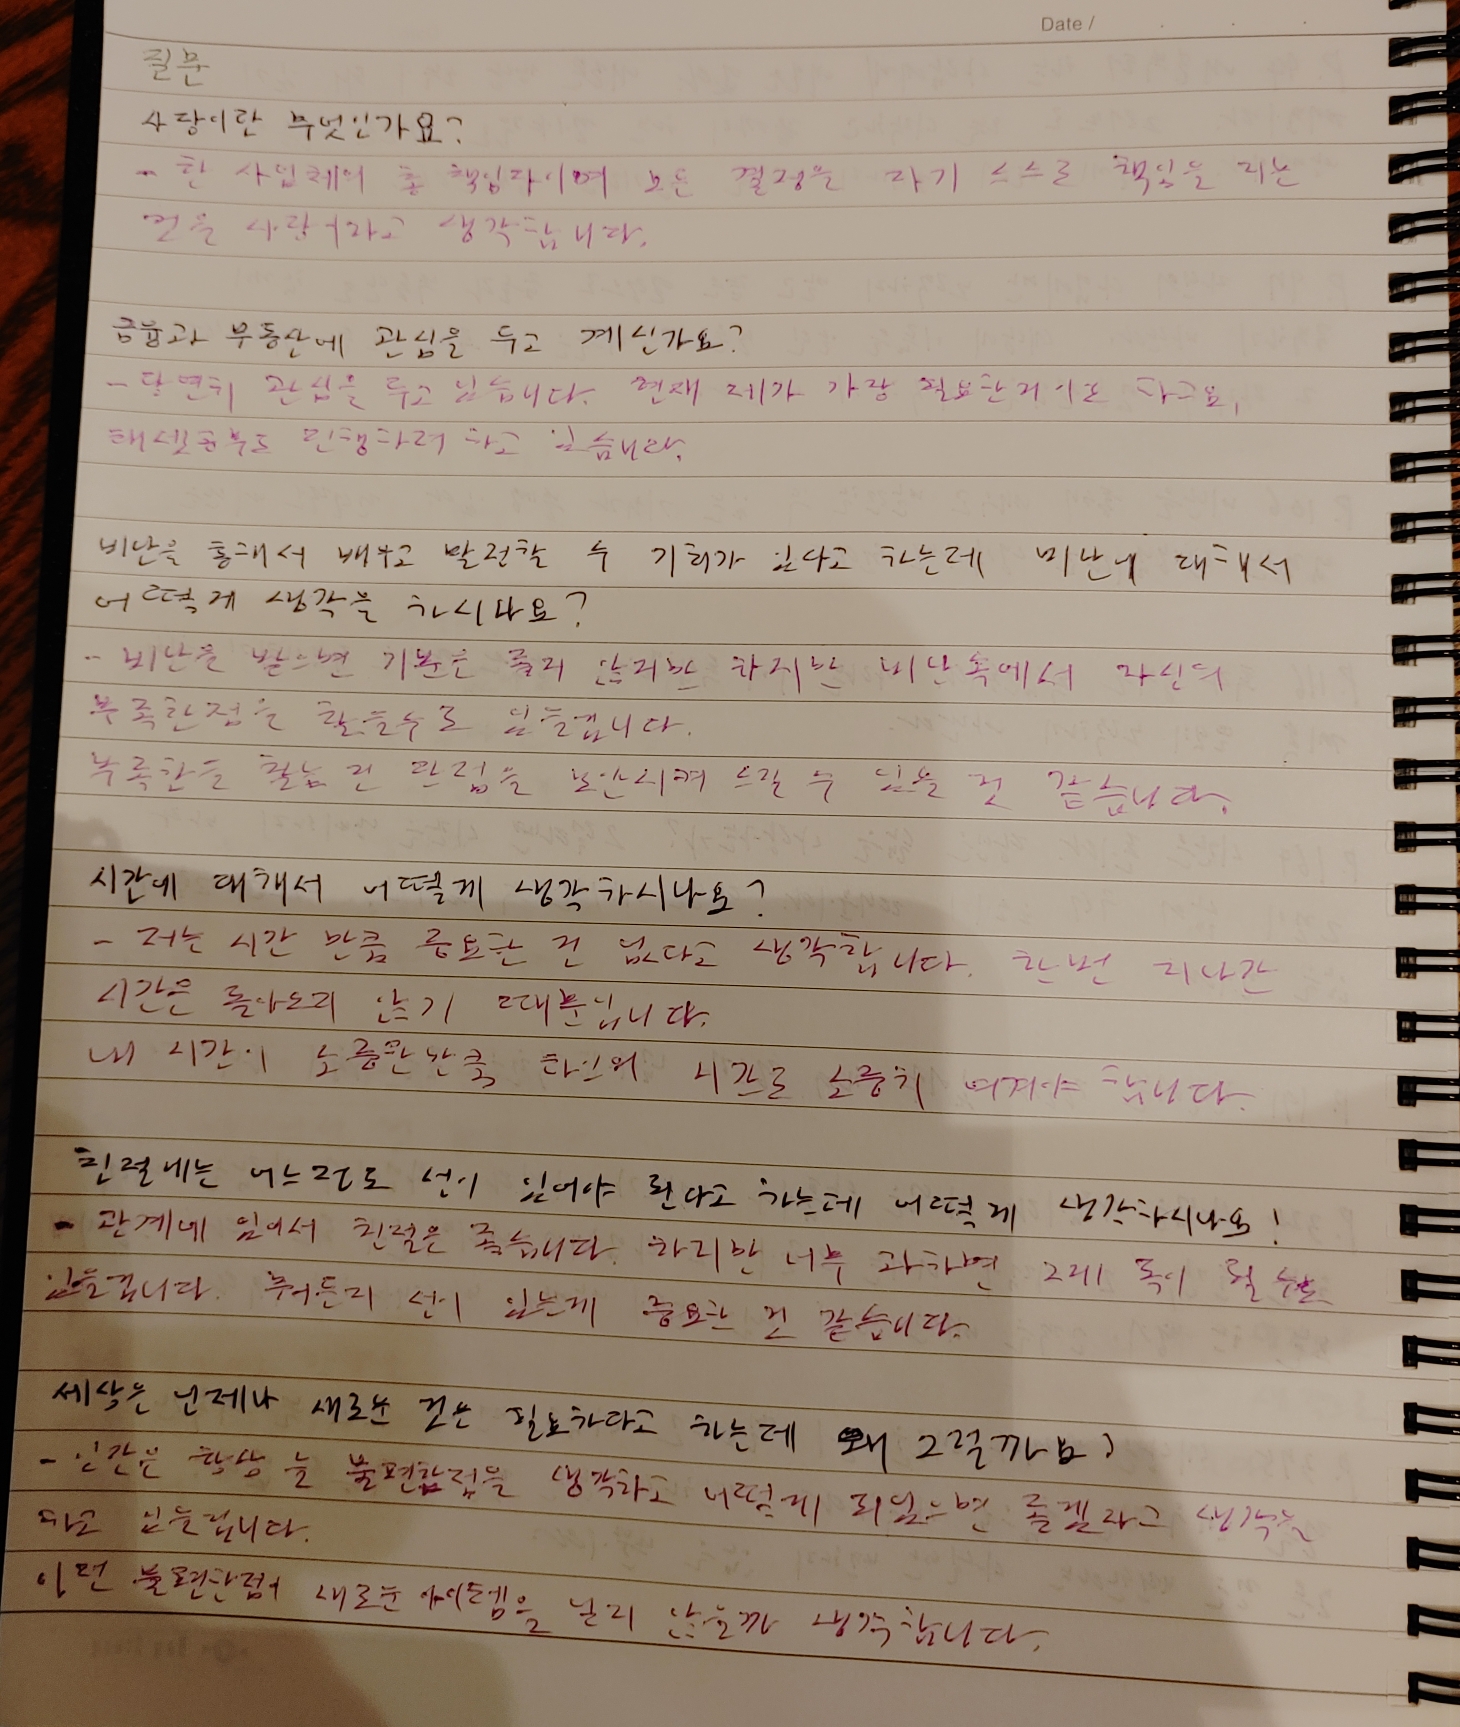 Date /
질문
사장이란 무엇인가요?
- 한 사업체의 총 책임자이며 모든 결정을 자기 스스로 책임을 지는
것을 사장이라고 생각합니다.
금융과 부동산에 관심을 두고 계신가요?
- 당연히 관심을 두고 있습니다. 현재 제가 가장 필요한거기도 하구요,
하고 있습니다.
비난을 통해서 배우고 발전할 수 기회가 있다고 하는데 비난에 대해서
어떻게 생각을 하시나요?
- 비난을 받으면 기분은 좋지 않지만 하지만 비난속에서 자신의
부족한점을 찾을수도 있을겁니다.
부족함을 단점을 보완시켜 수 있을 것 같습니다.
시간에 대해서 어떻게 생각하시나요?
- 저는 시간 만큼 중요한 건 없다고 생각합니다. 한번 지나간
시간은 돌아오지 않기 때문입니다.
내 시간이 소중한만큼 타인의 시간도 소중히 여겨야 합니다.
친절에는 어느정도 선이 있어야 된다고 하는데 어떻게 생각하시나요!
- 관계에 있어서 친절은 좋습니다. 하지만 너무 과하면 그게 독이 될 수도
있을겁니다. 뭐든지 선이 있는게 중요한 것 같습니다.
세상은 언제나 새로운 것은 필요하다고 하는데 왜 그럴까요?
- 인간은 항상 늘 불편함점을 생각하고 어떻게 되었으면 좋겠다고 생각을
하고 있을겁니다.
이런 불편한점이 새로운 아이템을 낳지 않을까 생각합니다.